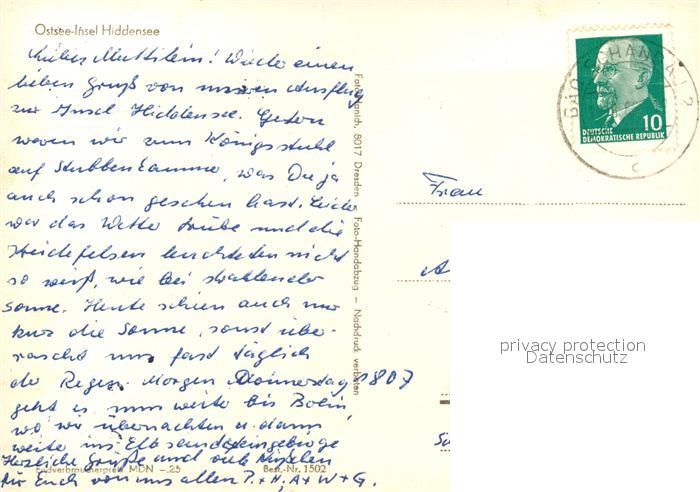 Ostsee-Insel Hiddensee
Liebes Muttilein! Wieder einen
lieben Gruß von unseren Ausflug
zur Insel Hiddensee. Gestern
waren wir zum Königsstuhl
auf Stubbenkammer, was Du ja
auch schon gesehen hast. Leider
war das Wetter trübe und die
Kreidefelsen leuchteten nicht
so weiß, wie bei strahlender
Sonne. Heute schien auch nur
kurz die Sonne, sonst über-
rascht uns fast täglich
der Regen. Morgen Donnerstag
geht es nun weiter bis Berlin,
wo wir übernachten u. dann
weiter ins Elbsandsteingebirge
Herzliche Grüße und viele
für Euch von uns allen P.+H, A+W+G.
Endverbraucherpreis MDN -.25
Best.-Nr. 1502
Foto-Hanich, 8017 Dresden
Foto-Handabzug — Nachdruck verboten
807
BAD SCHANDAU 2
c
10
DEUTSCHE
DEMOKRATISCHE REPUBLIK
Frau
privacy protection
Datenschutz